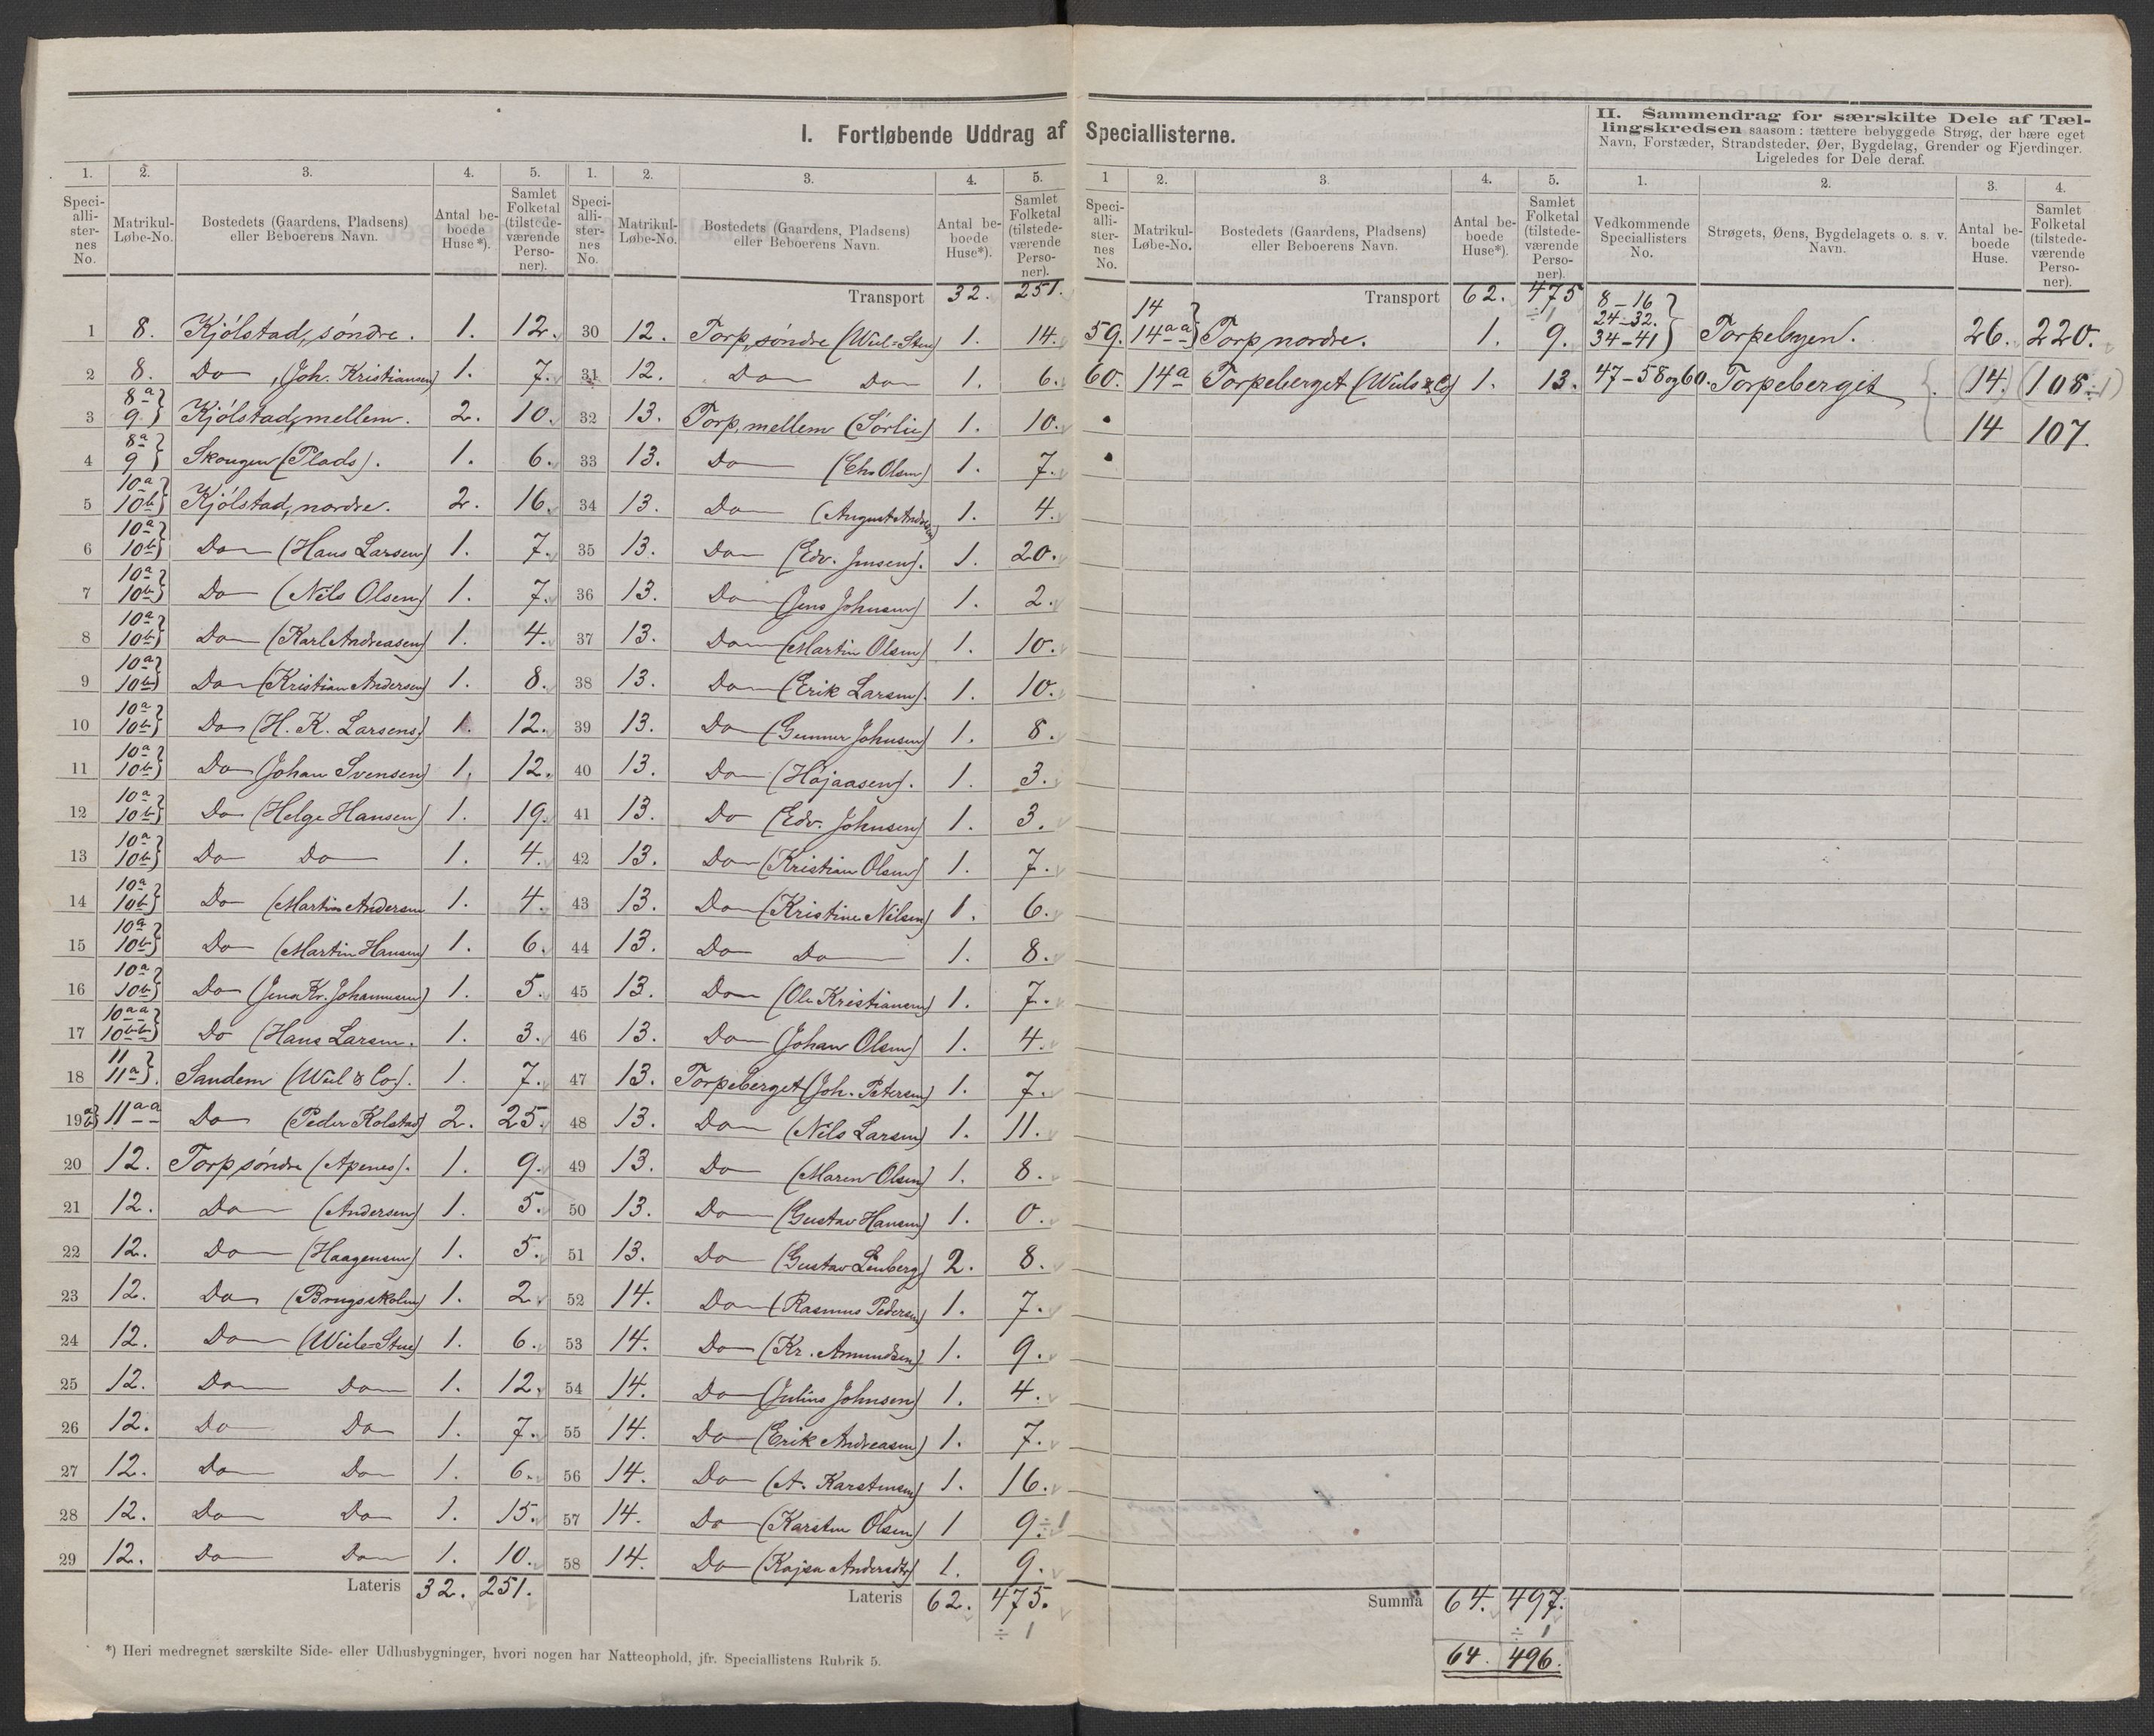 I. Fortløbende Uddrag af Speciallisterne.
II. Sammendrag for særskilte Dele af Tæl-
lingskredsen saasom: tættere bebyggede Strøg, der bære eget
Navn, Forstæder, Strandsteder, Øer, Bygdelag, Grender og Fjerdinger.
Ligeledes for Dele deraf.
1. 2. 3. 4. 5.
Speciallisternes No. Matrikul-Løbe-No. Bostedets (Gaardens, Pladsens) eller Beboerens Navn. Antal beboede Huse*). Samlet Folketal (tilstedeværende Personer).
1 8. Kjölstad, söndre. 1. 12.
2 8. Do, (Joh. Kristiansen) 1. 7.
3 8a 9.} Kjölstad, mellem. 2. 10.
4 8a 9} Skougen (Plads). 1. 6.
5 10a 10b} Kjölstad, nordre. 2. 16.
6 10a 10b} Do (Hans Larsen) 1. 7.
7 10a 10b} Do (Nils Olsen) 1. 7.
8 10a 10b} Do (Karl Andreasen) 1. 4.
9 10a 10b} Do (Kristian Andersen) 1. 8.
10 10a 10b} Do (H. K. Larsens) 1. 12.
11 10a 10b} Do (Johan Svensen) 1. 12.
12 10a 10b} Do (Helge Hansen) 1. 19.
13 10a 10b} Do Do 1. 4.
14 10a 10b} Do (Martin Andersen 1. 4.
15 10a 10b} Do (Martin Hansen) 1. 6.
16 10a 10b} Do (Jens Kr. Johannesen) 1. 5.
17 10aa 10bb} Do (Hans Larsen. 1. 3.
18 11 11a}. Sandem (Wiel & Co). 1. 7.
19 a b} 11aa Do (Peder Kolstad) 2. 25.
20 12. Torp söndre (Apenes). 1. 9.
21 12. Do (Andersen) 1. 5.
22 12. Do (Haagensen) 1. 5.
23 12. Do (Brugsskolen) 1. 2.
24 12. Do (Wiels-Stue) 1. 6.
25 12. Do Do 1. 12.
26 12. Do Do 1. 7.
27 12. Do Do 1. 6.
28 12. Do Do 1. 15.
29 12. Do Do 1. 10.
Lateris 32. 251.
*) Heri medregnet særskilte Side- eller Udhusbygninger, hvori nogen har Natteophold, jfr. Speciallistens Rubrik 5.
1. 2. 3. 4. 5.
Speciallisternes No. Matrikul-Løbe-No. Bostedets (Gaardens, Pladsens) eller Beboerens Navn. Antal beboede Huse*). Samlet Folketal (tilstedeværende Personer).
Transport 32. 251.
30 12. Torp, söndre (Wiel-Stue) 1. 14.
31 12. Do Do 1. 6.
32 13. Torp, mellem (Sörlie) 1. 10.
33 13. Do (Chr Olsen) 1. 7.
34 13. Do (August Andresen) 1. 4.
35 13. Do (Edv. Jensen). 1. 20.
36 13. Do (Jens Johnsen) 1. 2.
37 13. Do (Martin Olsen) 1. 10.
38 13. Do (Erik Larsen). 1. 10.
39 13. Do (Gunner Johnsen) 1. 8.
40 13. Do (Höjaasen). 1. 3.
41 13. Do (Edv. Johnsen) 1. 3.
42 13. Do (Kristian Olsen) 1. 7.
43 13. Do (Kristine Nilsen) 1. 6.
44 13. Do Do 1. 8.
45 13. Do (Ole Kristiansen) 1. 7.
46 13. Do (Johan Olsen) 1. 4.
47 13. Torpeberget (Joh. Petersen) 1. 7.
48 13. Do (Nils Larsen) 1. 11.
49 13. Do (Maren Olsen) 1. 8.
50 13. Do (Gustav Hansen) 1. 0.
51 13. Do (Gustav Linberg) 2. 8.
52 14. Do (Rasmus Pedersen) 1. 7.
53 14. Do (Kr. Amundsen) 1. 9.
54 14. Do (Julius Johnsen) 1. 4.
55 14. Do (Erik Andreasen) 1. 7.
56 14. Do (A. Karstensen) 1. 16.
57 14. Do (Karsten Olsen) 1 9. ÷1
58 14. Do (Kajsa Andersdtr) 1. 9.
Lateris 62. 475.
÷ 1
1 2. 3. 4. 5.
Speciallisternes No. Matrikul-Løbe-No. Bostedets (Gaardens, Pladsens) eller Beboerens Navn. Antal beboede Huse*). Samlet Folketal (tilstedeværende Personer).
Transport 62. 475
÷ 1
59. 14 14aa} Torp nordre. 1. 9.
60. 14a Torpeberget (Wiels & Co) 1. 13.
Summa 64. 497.
÷ 1
64. 496.
1. 2. 3. 4.
Vedkommende Speciallisters No. Strøgets, Øens, Bygdelagets o. s. v. Navn. Antal beboede Huse. Samlet Folketal (tilstedeværende Personer).
8-16 24-32. 34-41} Torpebyen. 26. 220.
47-58 og 60. Torpeberget (14. (108 ÷1)
14 107.